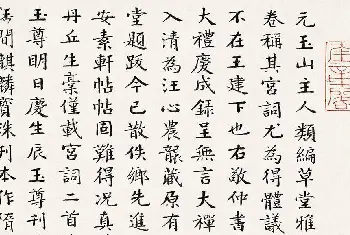 元玉山主人類編草堂雅
卷稱其宮詞尤為得體議
不在王建下也右敬仲書
大禮慶成錄呈無言大禪
入清為汪心農藏原有
堂題跋今已散佚鄉先進
安素軒帖帖固難得况真
丹丘生稾僅載宮詞二首
玉尊明日慶生辰玉尊刊
麒麟寶刊本作